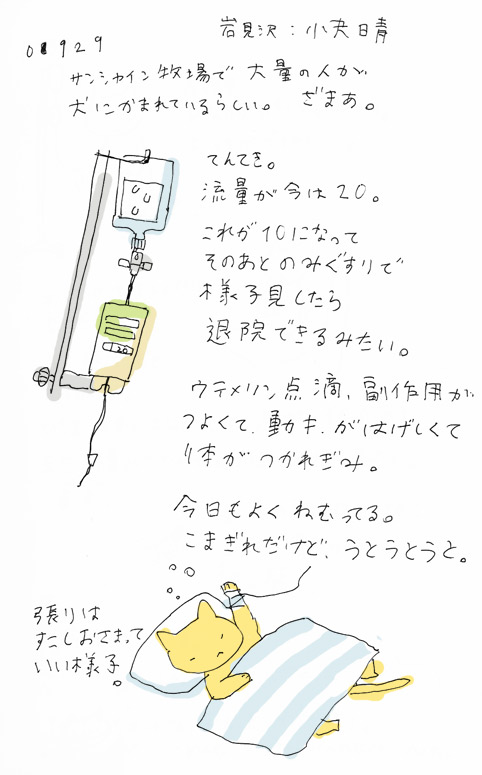 岩見沢：小夬日青
080929
サンシャイン牧場で大量の人が
犬にかまれているらしい。ざまあ。
てんてき。
流量が今は20。
これが10になって
そのあとのみぐすりで
様子見したら
退院できるみたい。
20
ウテメリン点滴、副作用が
つよくて、動キ、がはげしくて
体がつかれぎみ。
今日もよくねむってる。
こまぎれだけど、うとうとうと。
張りは
すこしおさまって
いい様子。